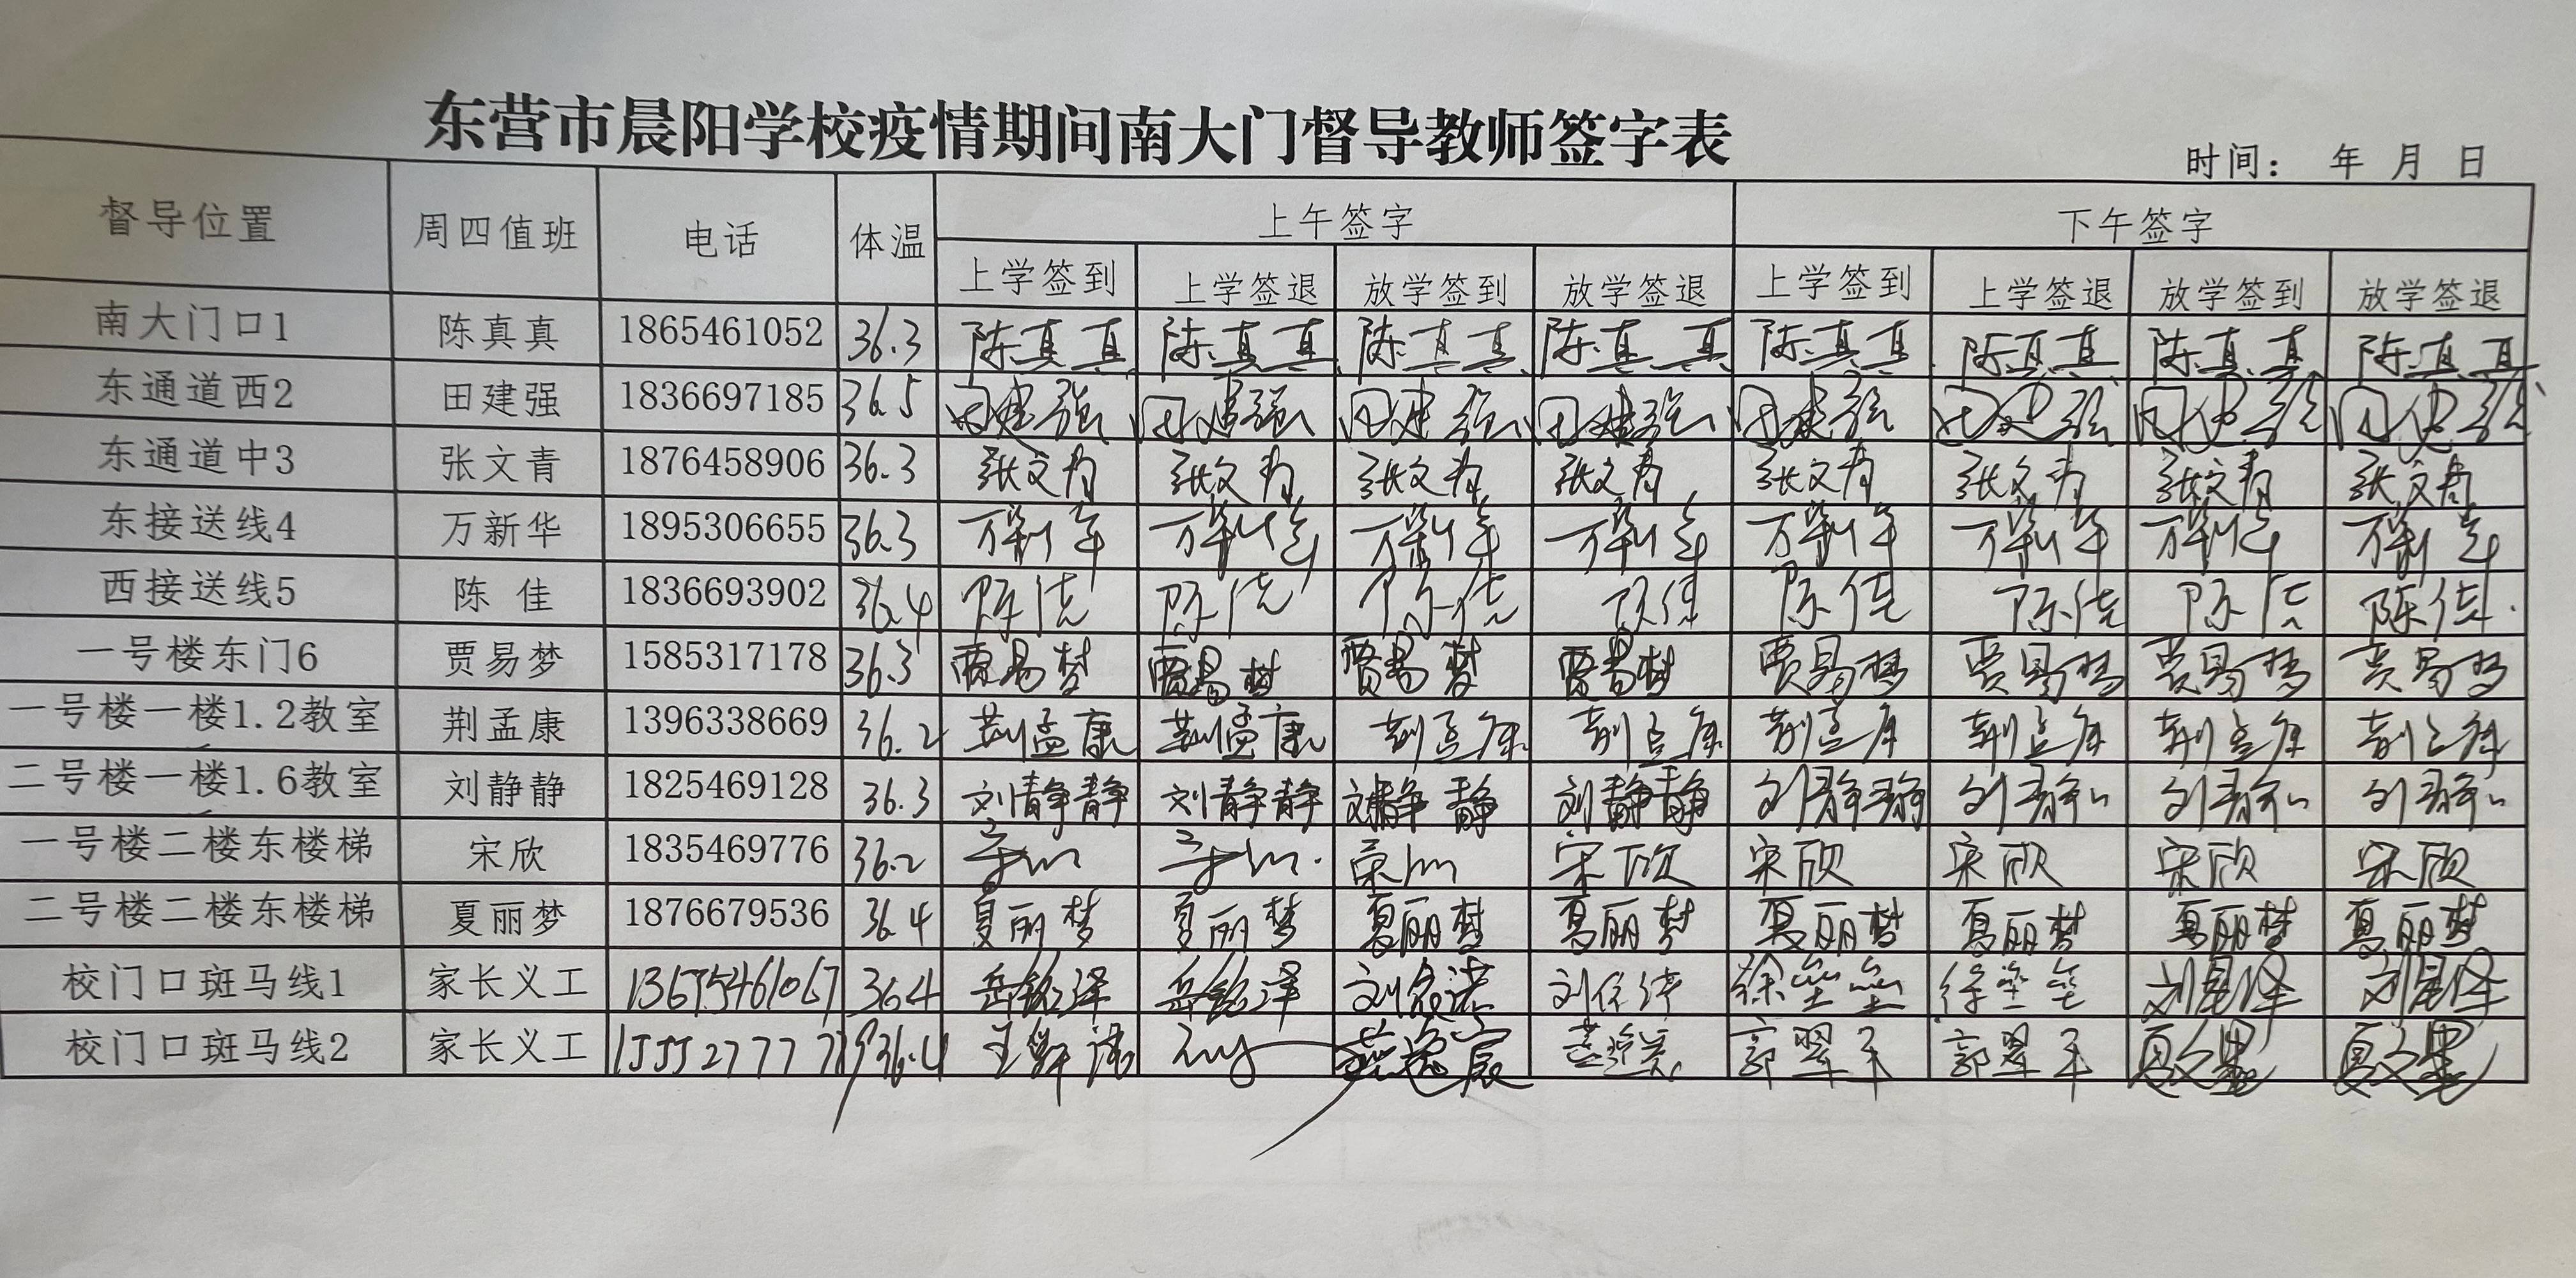 东营市晨阳学校疫情期间南大门督导教师签字表
时间： 年 月 日
督导位置 周四值班 电话 体温 上午签字 下午签字
上学签到 上学签退 放学签到 放学签退 上学签到 上学签退 放学签到 放学签退
南大门口1 陈真真 1865461052 36.3 陈真真 陈真真 陈真真 陈真真 陈真真 陈真真 陈真真 陈真真
东通道西2 田建强 1836697185 36.5 田建强 田建强 田建强 田建强 田建强 田建强 田建强 田建强
东通道中3 张文青 1876458906 36.3 张文青 张文青 张文青 张文青 张文青 张文青 张文青 张文青
东接送线4 万新华 1895306655 36.3 万新华 万新华 万新华 万新华 万新华 万新华 万新华 万新华
西接送线5 陈 佳 1836693902 36.4 陈佳 陈佳 陈佳 陈佳 陈佳 陈佳 陈佳 陈佳
一号楼东门6 贾易梦 1585317178 36.3 贾易梦 贾易梦 贾易梦 贾易梦 贾易梦 贾易梦 贾易梦 贾易梦
一号楼一楼1.2教室 荆孟康 1396338669 36.2 荆孟康 荆孟康 荆孟康 荆孟康 荆孟康 荆孟康 荆孟康 荆孟康
二号楼一楼1.6教室 刘静静 1825469128 36.3 刘静静 刘静静 刘静静 刘静静 刘静静 刘静静 刘静静 刘静静
一号楼二楼东楼梯 宋欣 1835469776 36.2 宋欣 宋欣 宋欣 宋欣 宋欣 宋欣 宋欣 宋欣
二号楼二楼东楼梯 夏丽梦 1876679536 36.4 夏丽梦 夏丽梦 夏丽梦 夏丽梦 夏丽梦 夏丽梦 夏丽梦 夏丽梦
校门口斑马线1 家长义工 13675461067 36.4 岳铭泽 岳铭泽 徐垒垒 徐垒垒
校门口斑马线2 家长义工 36.4 郭翠平 郭翠平